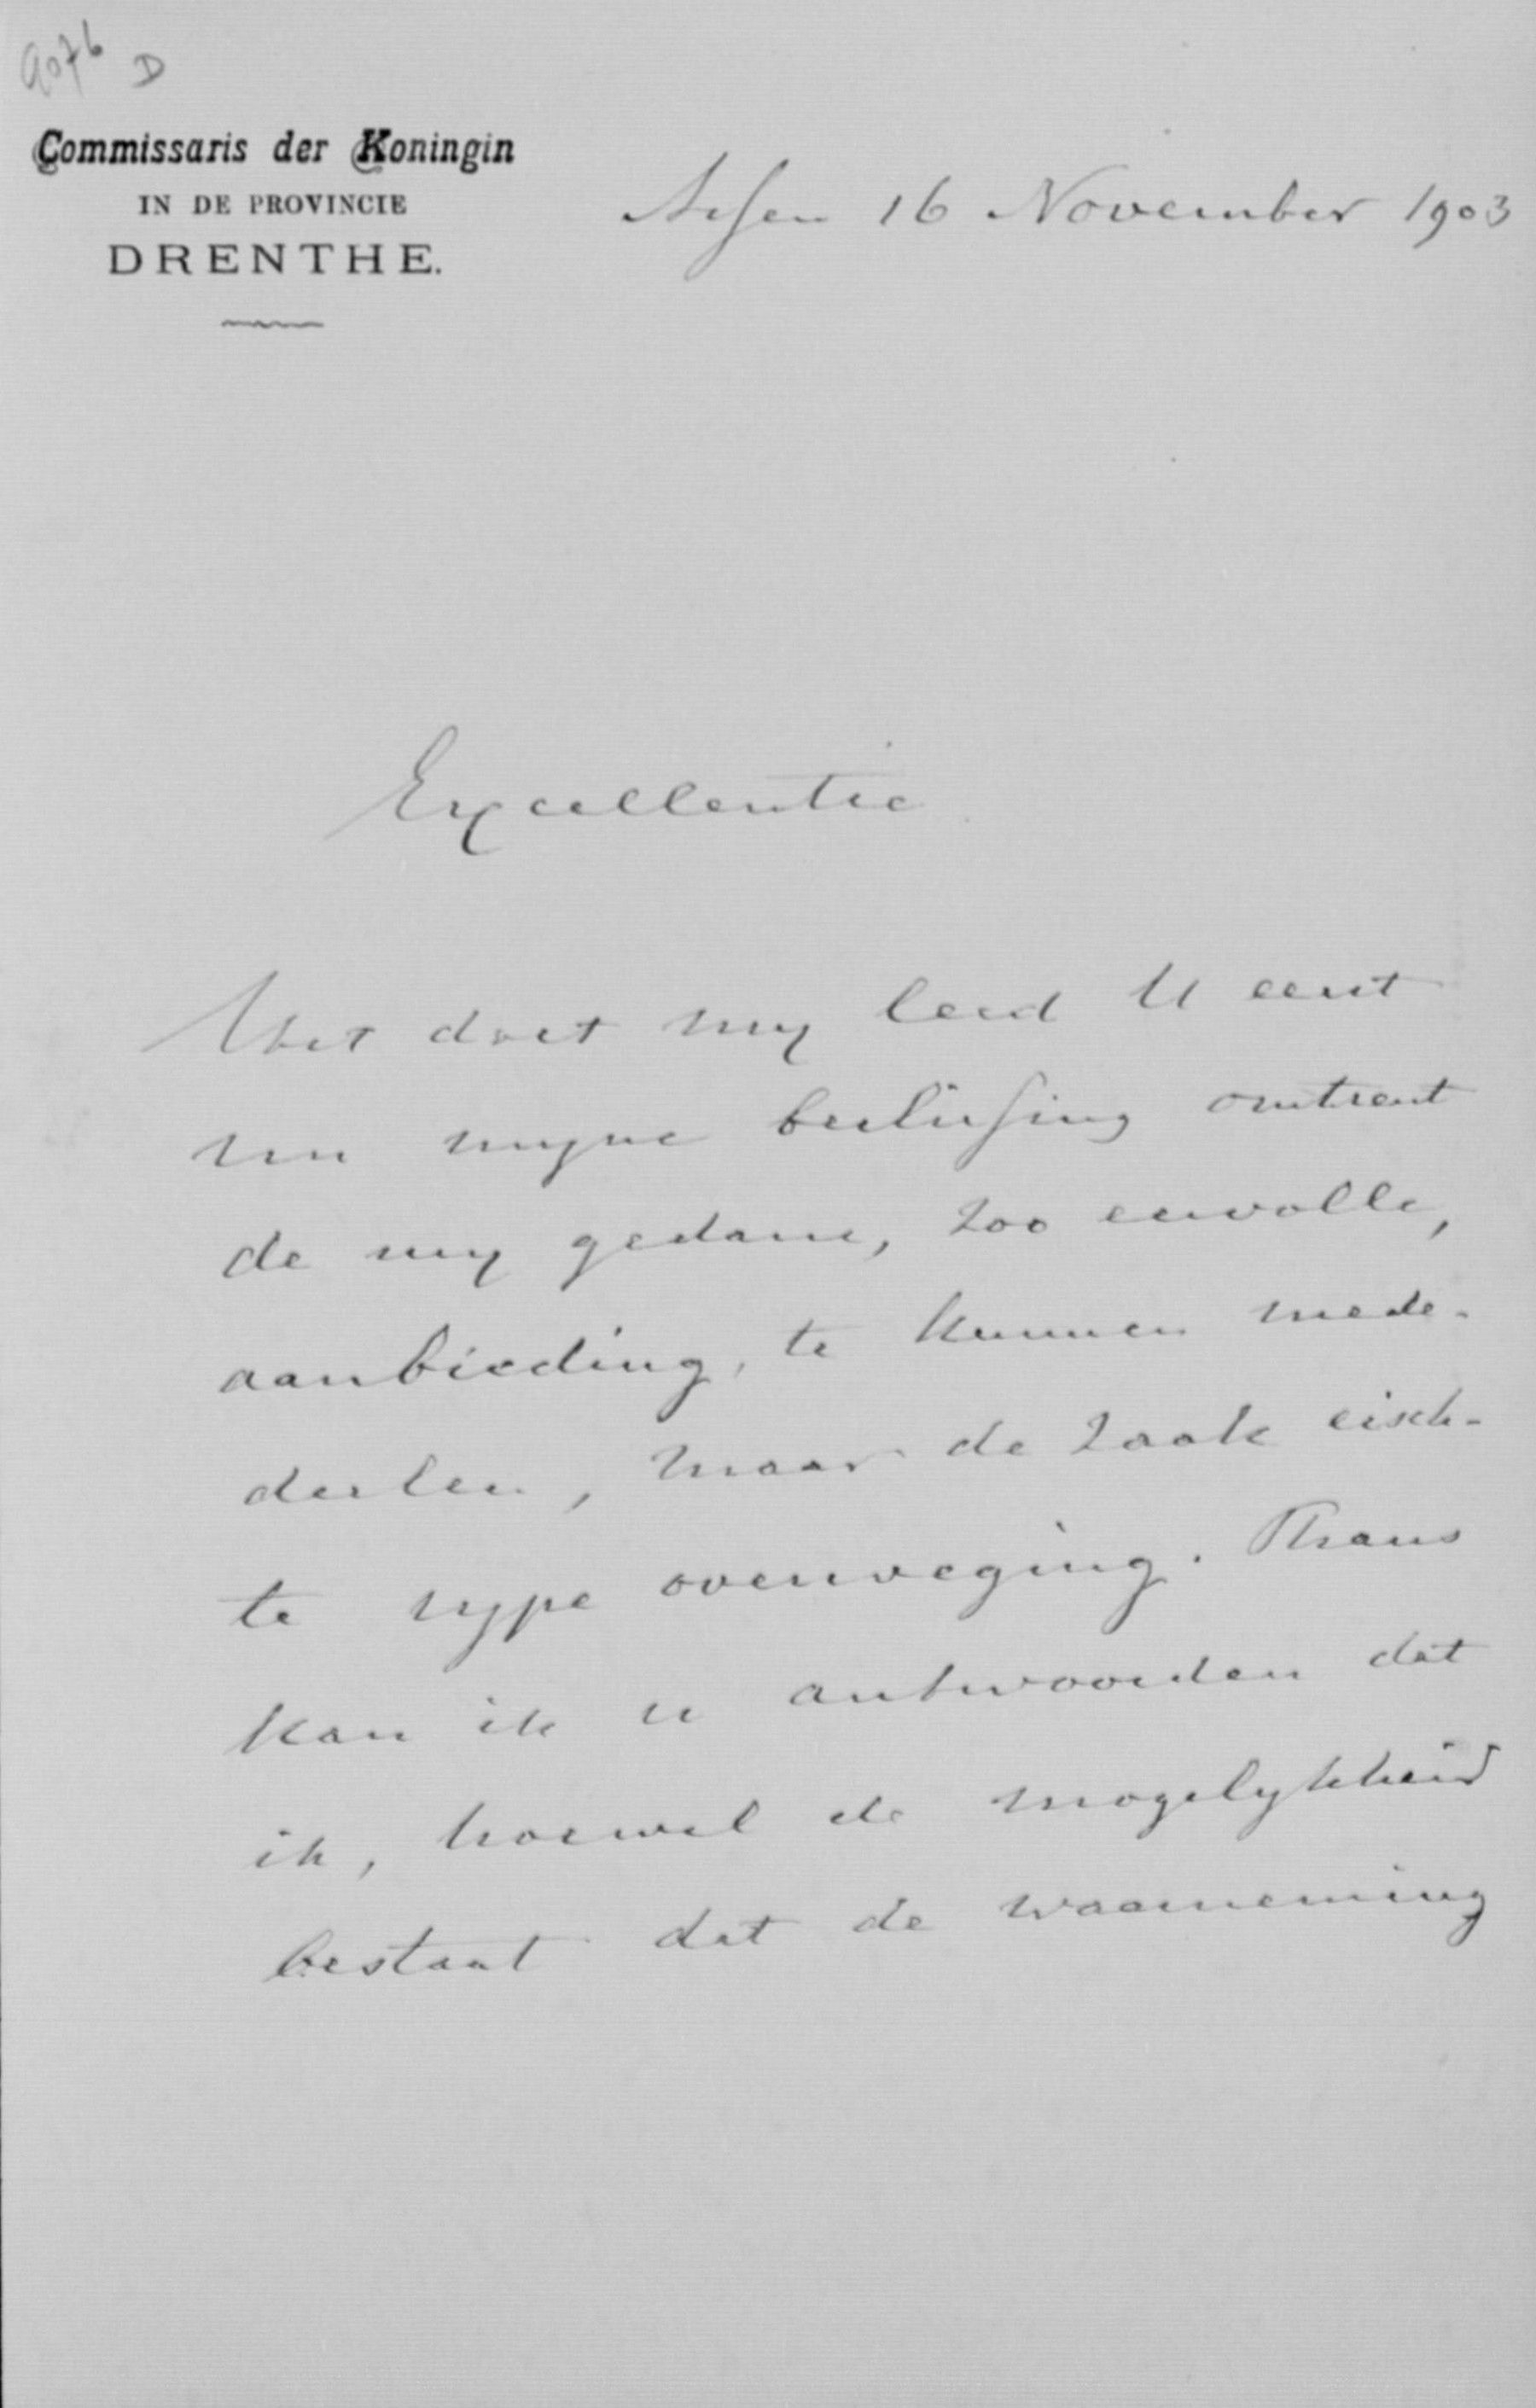 9076 D
Commissaris der Koningin
IN DE PROVINCIE
DRENTHE.
Assen 16 November 1903
Excellentie
Het doet my leed U eerst
nu myne beslissing omtrent
de my gedane, zoo eervolle,
aanbieding, te kunnen mede-
deelen, maar de zaak eisch-
te rype overweging. Thans
kan ik u antwoorden dat
ik, hoewel de mogelykheid
bestaat dat de waarneming